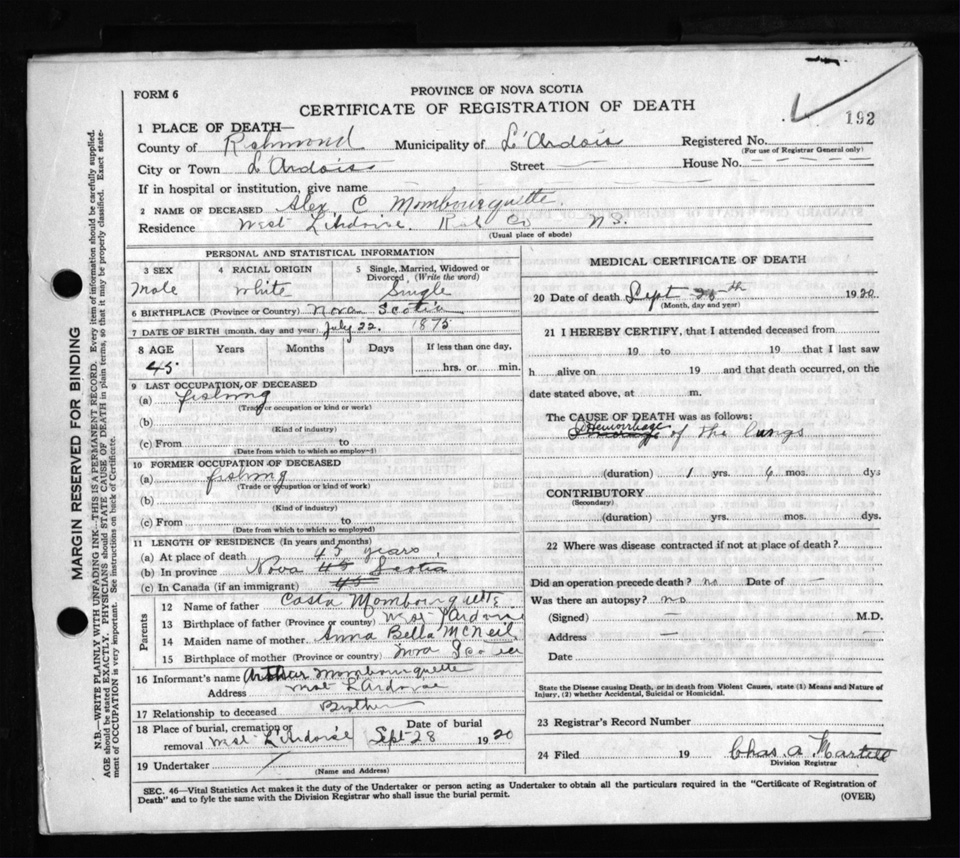 FORM 6
PROVINCE OF NOVA SCOTIA
CERTIFICATE OF REGISTRATION OF DEATH
192
1 PLACE OF DEATH—
County of Richmond Municipality of L'Ardois Registered No.
(For use of Registrar General only)
City or Town L'Ardois Street — House No. — — — — —
If in hospital or institution, give name —
2 NAME OF DECEASED Alex. C Mombourquette.
Residence West L'Ardoise. Rich Co N.S.
(Usual place of abode)
PERSONAL AND STATISTICAL INFORMATION
3 SEX 4 RACIAL ORIGIN 5 Single, Married, Widowed or Divorced, (Write the word)
Male White Single
6 BIRTHPLACE (Province or Country) Nova Scotia
7 DATE OF BIRTH (month, day and year) July 22. 1875
8 AGE Years Months Days If less than one day,
45 hrs. or min.
9 LAST OCCUPATION OF DECEASED
(a) fishing
(Trade or occupation or kind or work)
(b)
(Kind of industry)
(c) From to
(Date from which to which so employ-)
10 FORMER OCCUPATION OF DECEASED
(a) fishing
(Trade or occupation or kind of work)
(b)
(Kind of industry)
(c) From to
(Date from which to which so employed)
11 LENGTH OF RESIDENCE (In years and months)
(a) At place of death 45 years
(b) In province Nova 45 Scotia
(c) In Canada (if an immigrant) 45
Parents
12 Name of father Costa Mombourquette
13 Birthplace of father (Province or country) West L'Ardoise
14 Maiden name of mother. Anna Bella McNeil
15 Birthplace of mother (Province or country) Nova Scotia
16 Informant's name Arthur Mombourquette
Address West L'Ardoise
17 Relationship to deceased Brother
18 Place of burial, cremation or removal West L'Ardoise Date of burial Sept 28 1920
19 Undertaker /
(Name and Address)
MEDICAL CERTIFICATE OF DEATH
20 Date of death Sept 26th 1920.
(Month, day and year)
21 I HEREBY CERTIFY, that I attended deceased from
19 to 19 that I last saw
h alive on 19 and that death occurred, on the
date stated above, at m.
The CAUSE OF DEATH was as follows:
Hemorrhage of the lungs
(duration) 1 yrs. 6 mos. dys
CONTRIBUTORY
(Secondary)
(duration) yrs. mos. dys.
22 Where was disease contracted if not at place of death?
Did an operation precede death? no Date of —
Was there an autopsy? no
(Signed) — M.D.
Address —
Date
State the Disease causing Death, or in death from Violent Causes, state (1) Means and Nature of Injury, (2) whether Accidental, Suicidal or Homicidal.
23 Registrar's Record Number
24 Filed 19 Chas. A Martell
Division Registrar
SEC. 46—Vital Statistics Act makes it the duty of the Undertaker or person acting as Undertaker to obtain all the particulars required in the "Certificate of Registration of
Death" and to fyle the same with the Division Registrar who shall issue the burial permit. (OVER)
MARGIN RESERVED FOR BINDING
N.B.—WRITE PLAINLY WITH UNFADING INK—THIS IS A PERMANENT RECORD. Every item of information should be carefully supplied.
AGE should be stated EXACTLY. PHYSICIANS should STATE CAUSE OF DEATH in plain terms, so that it may be properly classified. Exact state-
ment of OCCUPATION is very important. See instructions on back of Certificate.